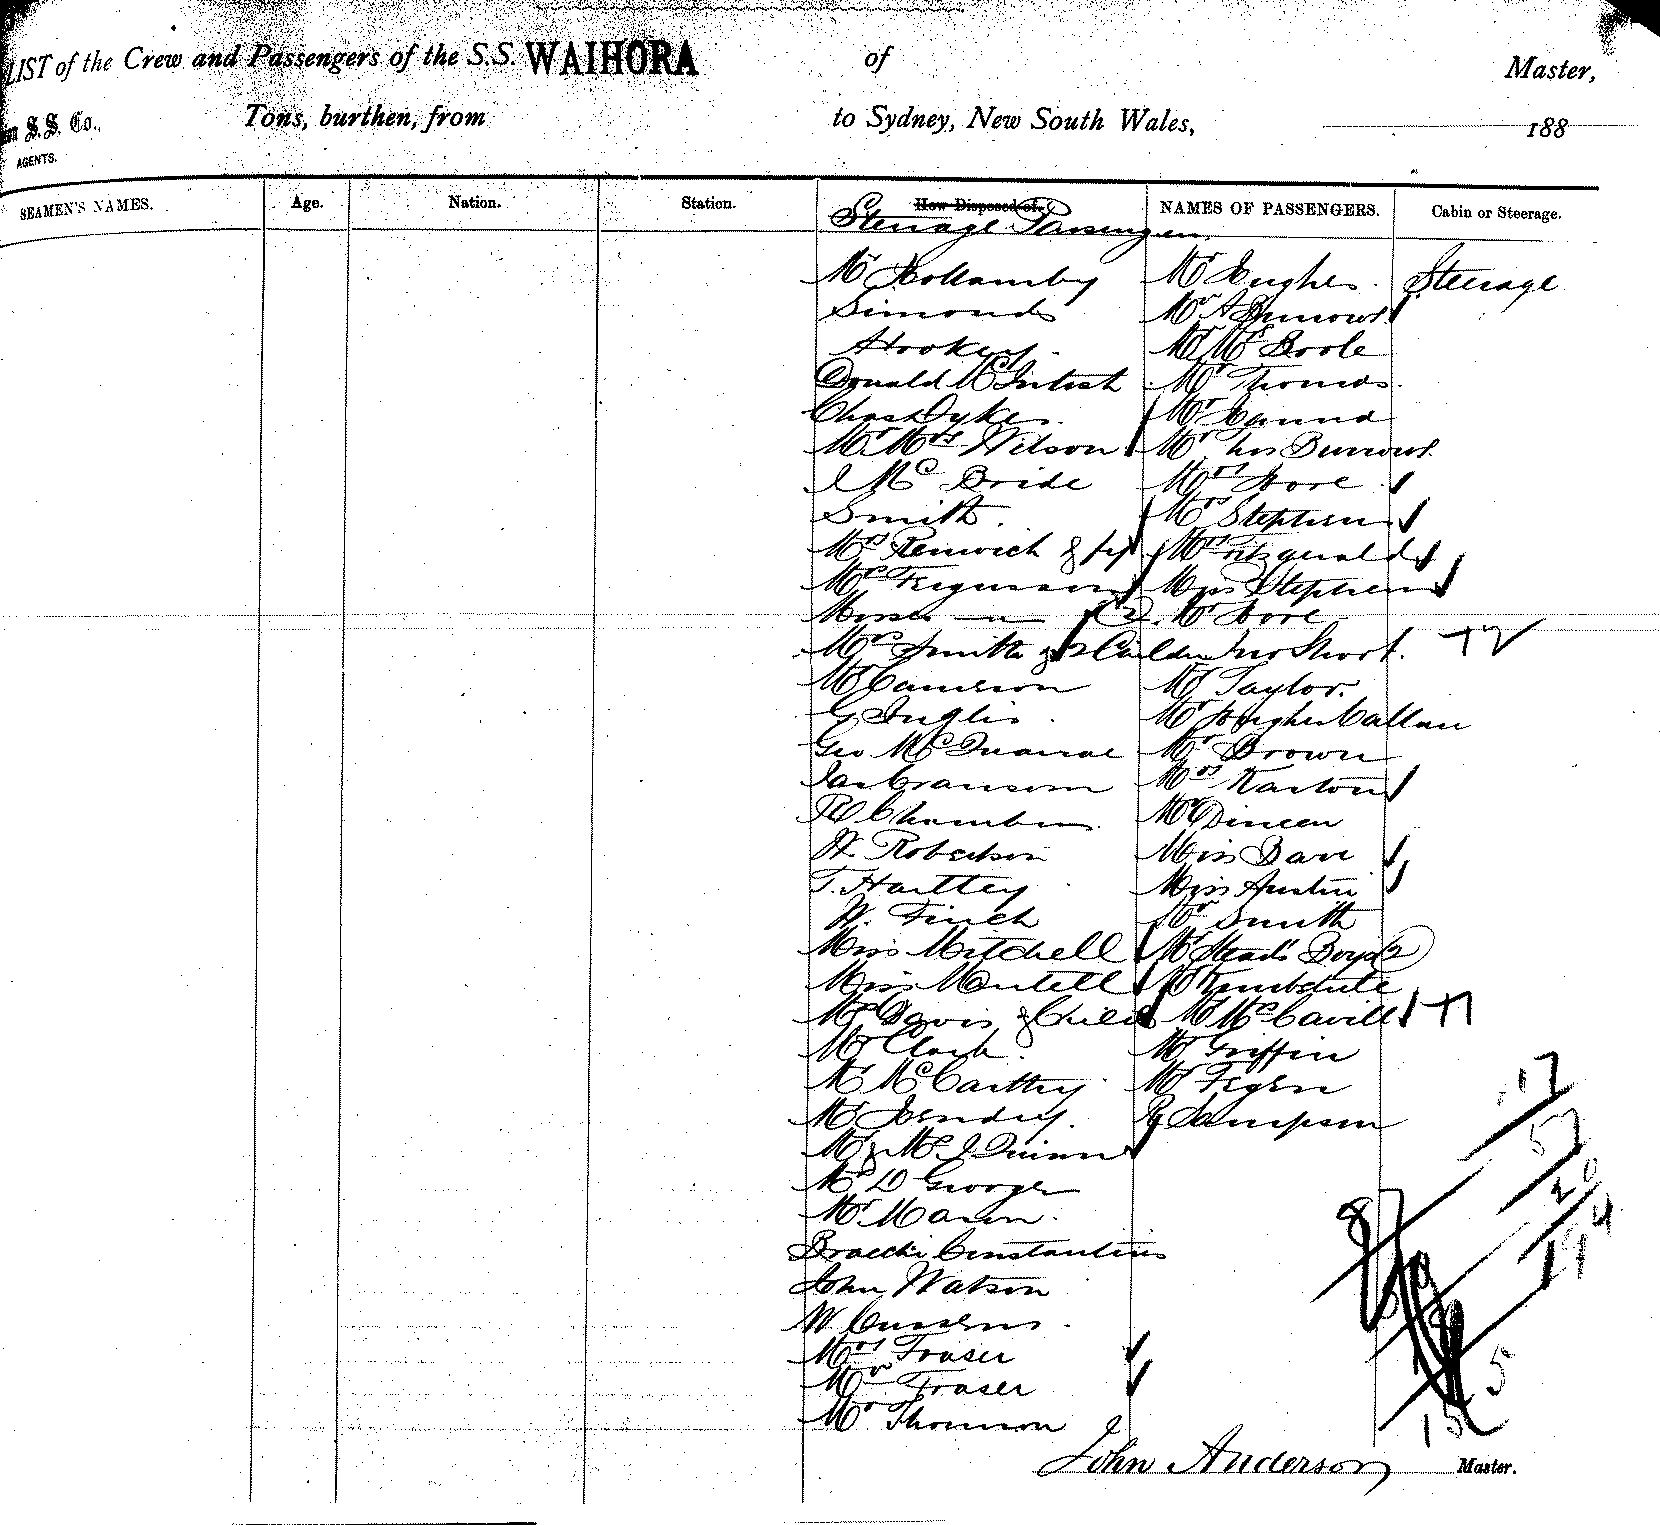 LIST of the Crew and Passengers of the S.S. WAIHORA of Master,
S.S. Co., Tons, burthen, from to Sydney, New South Wales, 188
AGENTS.
SEAMEN'S NAMES. Age. Nation. Station. How Disposed of. NAMES OF PASSENGERS. Cabin or Steerage.
Steerage Passengers
Mr Hollamby Mr Hughes. Steerage
Simonds Mr A Burrows
Hookey Mr Mc Boole
Donald McIntosh Mr Thomas
Chas Dyke Mr Hannd
Mr Mrs Wilson Mr Thos Burrows
J McBride Mrs Hore
Smith Mrs Stephens
Mrs Renwick & Mrs Fitzgerald
Mrs Ferguson Miss Stephens
2 Mr Hore
Mrs Smith & 2 Children Jno Short.
Mr Cameron Mr Taylor.
G Inglis Mr Hughes Callan
Geo McQuarrae Mr Brown
Jas Cransom Mrs Karton
R Chambers Mr Dineen
W. Robertson Miss Dave
T. Hartley Miss Austin
W. Finch Mr Smith
Miss Mitchell Mr Steads Boys 2
Miss Mantell
Mrs Davis & Child Mr Mrs Cavill
Mr Clark Mr Griffin
Mr McCarthy Mr Fegen
Mr Hendry. G Sampson
Mr & Mrs J Quinn
Mr D George
Mr Mason
Constantine
John Watson
W Cussens
Mrs Fraser
Mr Fraser
Mr Thomson
John Anderson Master.